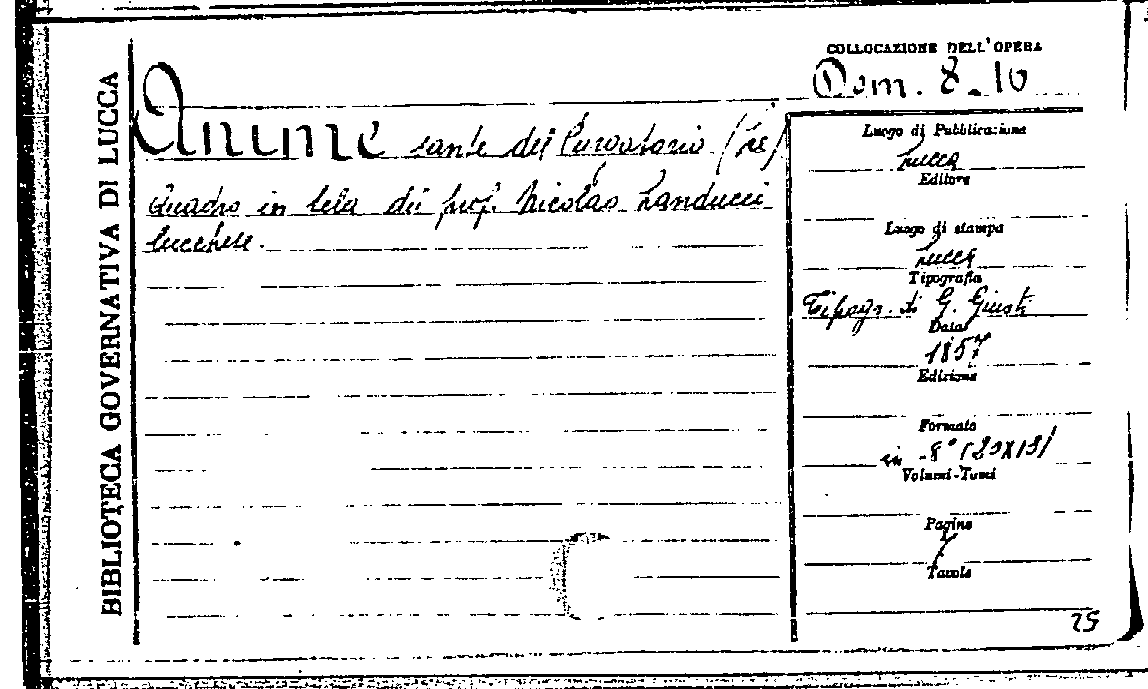 BIBLIOTECA GOVERNATIVA DI LUCCA
COLLOCAZIONE DELL'OPERA
Dom. 8-10
Anime sante del Purgatorio (Le)
Quadro in tela del prof. Nicolao Landucci
lucchese.
Luogo di Pubblicazione
Lucca
Editore
Luogo di stampa
Lucca
Tipografia
Tipogr. di G. Giusti
Data
1857
Edizione
Formato
in -8° (23X13)
Volumi-Tomi
Pagine
Tavole
25